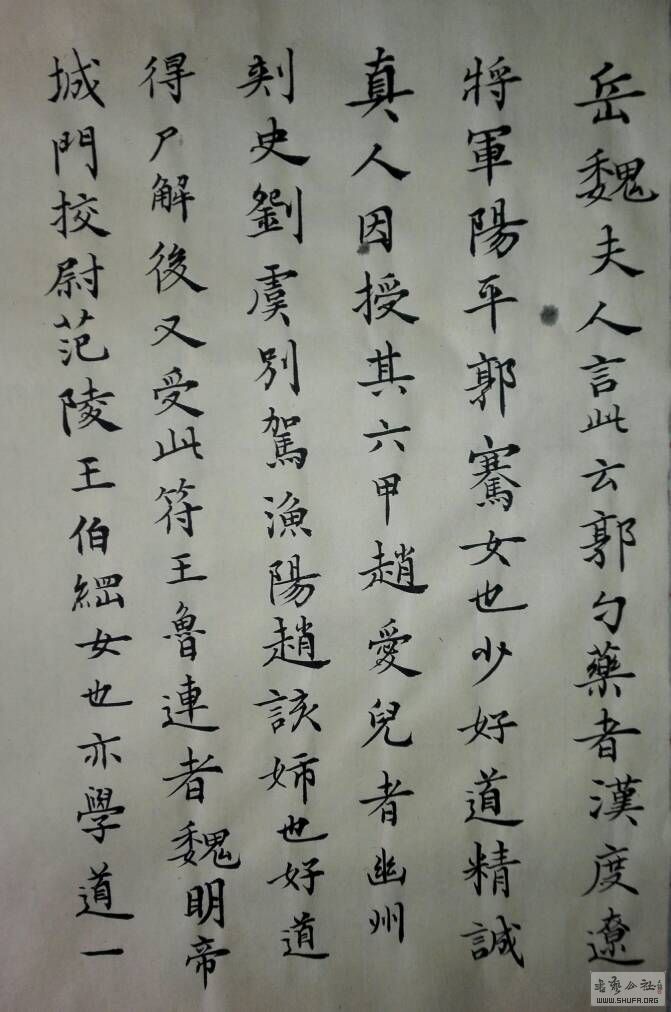 岳魏夫人言此云郭勺藥者漢度遼
將軍陽平郭騫女也少好道精誠
真人因授其六甲趙愛兒者幽州
刾史劉虞別駕漁陽趙該姉也好道
得尸解後又受此符王魯連者魏明帝
城門挍尉范陵王伯綱女也亦學道一
書藝公社
WWW.SHUFA.ORG